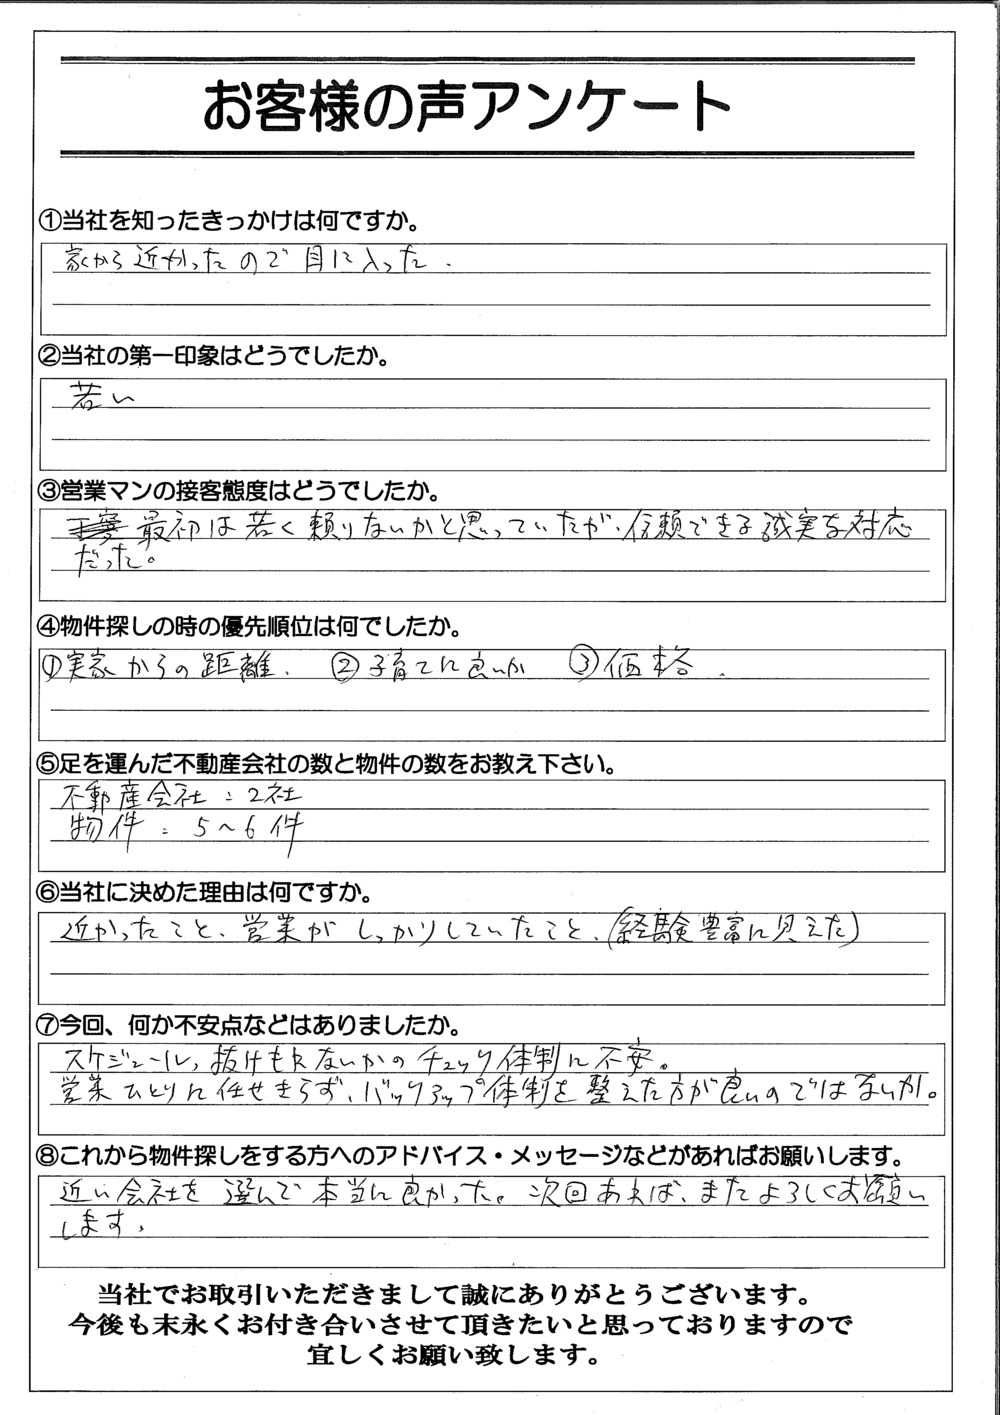 お客様の声アンケート
①当社を知ったきっかけは何ですか。
家から近かったので目に入った.
②当社の第一印象はどうでしたか。
若い
③営業マンの接客態度はどうでしたか。
最初は若く頼りないかと思っていたが、信頼できる誠実な対応
だった。
④物件探しの時の優先順位は何でしたか。
①実家からの距離. ②子育てに良いか ③価格.
⑤足を運んだ不動産会社の数と物件の数をお教え下さい。
不動産会社:2社
物件:5~6件
⑥当社に決めた理由は何ですか。
近かったこと、営業がしっかりしていたこと、(経験豊富に見えた)
⑦今回、何か不安点などはありましたか。
スケジュール、抜けもれないかのチェック体制に不安。
営業ひとりに任せきらず、バックアップ体制を整えた方が良いのではないか。
⑧これから物件探しをする方へのアドバイス・メッセージなどがあればお願いします。
近い会社を選んで本当に良かった。次回あれば、またよろしくお願い
します、
当社でお取引いただきまして誠にありがとうございます。
今後も末永くお付き合いさせて頂きたいと思っておりますので
宜しくお願い致します。